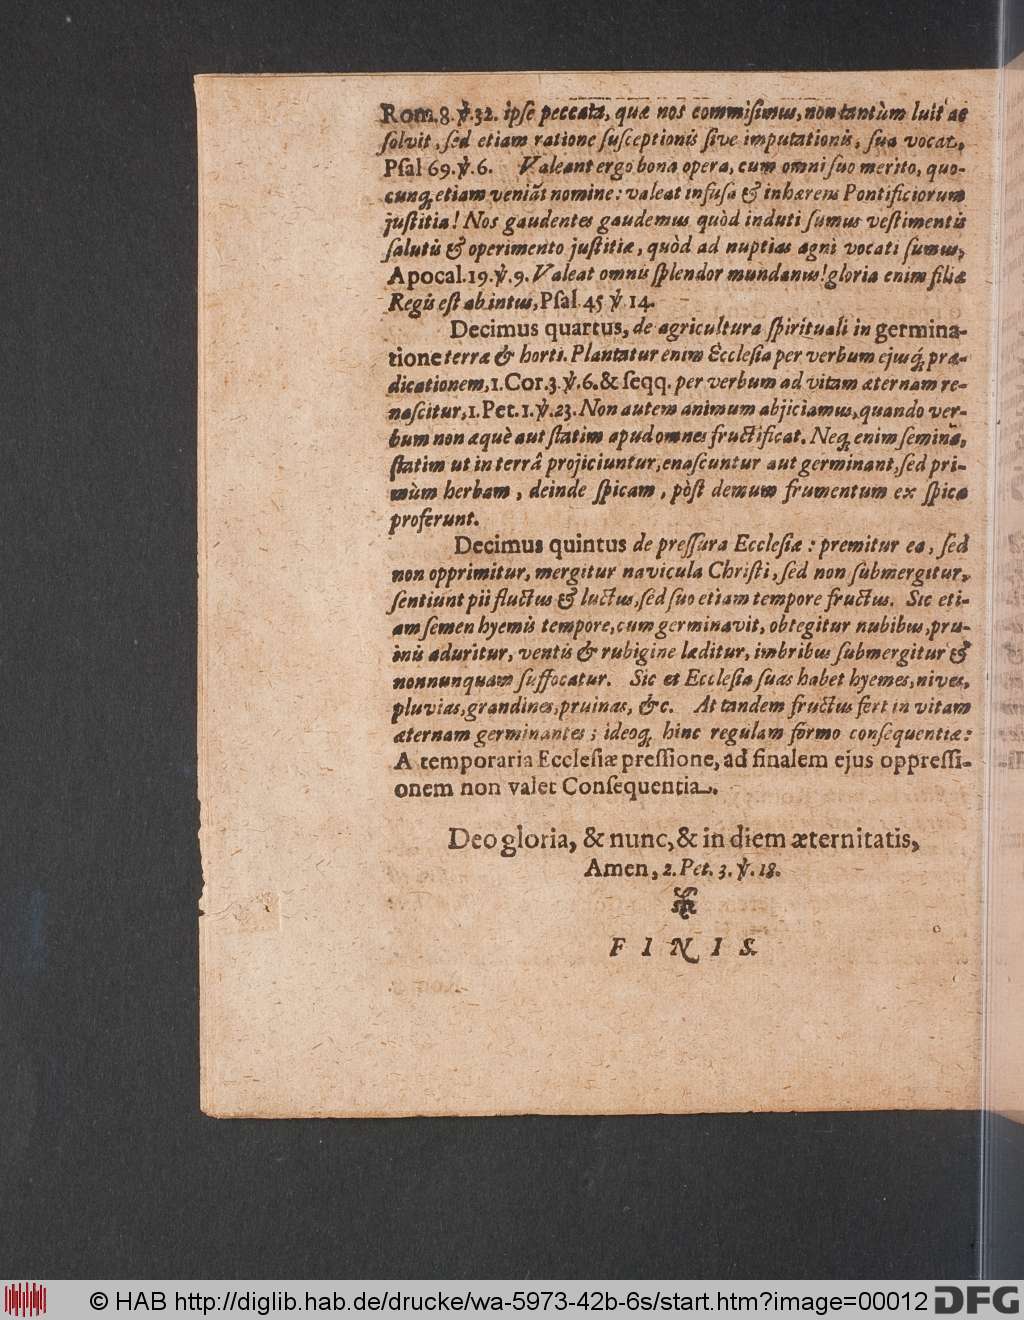 Rom. 8. ℣. 32. ipſe peccata, quæ nos commiſimus, non tantùm luit ac
ſolvit, ſed etiam ratione ſuſceptionis ſive imputationis, ſua vocat,
Pſal 69. ℣. 6. Valeant ergo bona opera, cum omni ſuo merito, quo-
cunq; etiam veniãt nomine: valeat infuſa & inhærens Pontificiorum
juſtitia! Nos gaudentes gaudemus quòd induti ſumus veſtimentis
ſalutis & operimento juſtitiæ, quòd ad nuptias agni vocati ſumus,
Apocal. 19. ℣. 9. Valeat omnis ſplendor mundanus! gloria enim filiæ
Regis eſt ab intus, Pſal. 45 ℣ 14.
Decimus quartus, de agricultura ſpirituali in germina-
tione terræ & horti. Plantatur enim Eccleſia per verbum ejusq́; præ-
dicationem, 1. Cor. 3. ℣. 6. & ſeqq. per verbum ad vitam æternam re-
naſcitur, 1. Pet. 1. ℣. 23. Non autem animum abjiciamus, quando ver-
bum non æquè aut ſtatim apud omnes fructificat. Neq; enim ſemina,
ſtatim ut in terrâ projiciuntur, enaſcuntur aut germinant, ſed pri-
mùm herbam, deinde ſpicam, pòſt demum frumentum ex ſpica
proferunt.
Decimus quintus de preſſura Eccleſiæ: premitur ea, ſed
non opprimitur, mergitur navicula Chriſti, ſed non ſubmergitur,
ſentiunt pii fluctus & luctus, ſed ſuo etiam tempore fructus. Sic eti-
am ſemen hyemis tempore, cum germinavit, obtegitur nubibus, pru-
inis aduritur, ventis & rubigine læditur, imbribus ſubmergitur &
nonnunquam ſuffocatur. Sic et Eccleſia ſuas habet hyemes, nives,
pluvias, grandines, pruinas, &c. At tandem fructus fert in vitam
æternam germinantes; ideoq; hinc regulam formo conſequentiæ:
A temporaria Eccleſiæ preſſione, ad finalem ejus oppreſſi-
onem non valet Conſequentia.
Deo gloria, & nunc, & in diem æternitatis,
Amen, 2. Pet. 3. ℣. 18.
FINIS.
© HAB http://diglib.hab.de/drucke/wa-5973-42b-6s/start.htm?image=00012 DFG